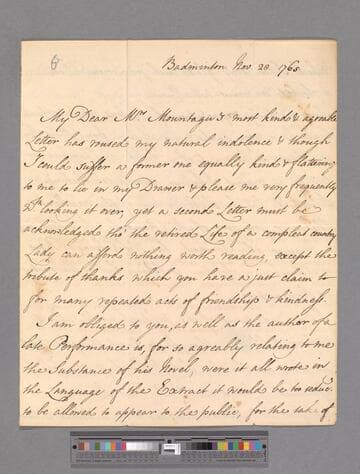 6
Badminton Nov. 28. 1765
My Dear Mrs. Mountagu's most kind & agreable
Letter has roused my natural indolence & though
I could suffer a former one equally kind & flattering
to me to lie in my Drawer & please me very frequently
wth looking it over, yet a second Letter must be
acknowledged tho' the retired Life of a compleat country
Lady can afford nothing worth reading, except the
tribute of thanks which you have a just claim to
for many repeated acts of friendship & kindness.
I am obliged to you, as well as the author of a
late Performance is, for so agreably relating to me
the Substance of his Novel, were it all wrote in
the Language of the Extract it would be too
to be allowed to appear to the public, for the of